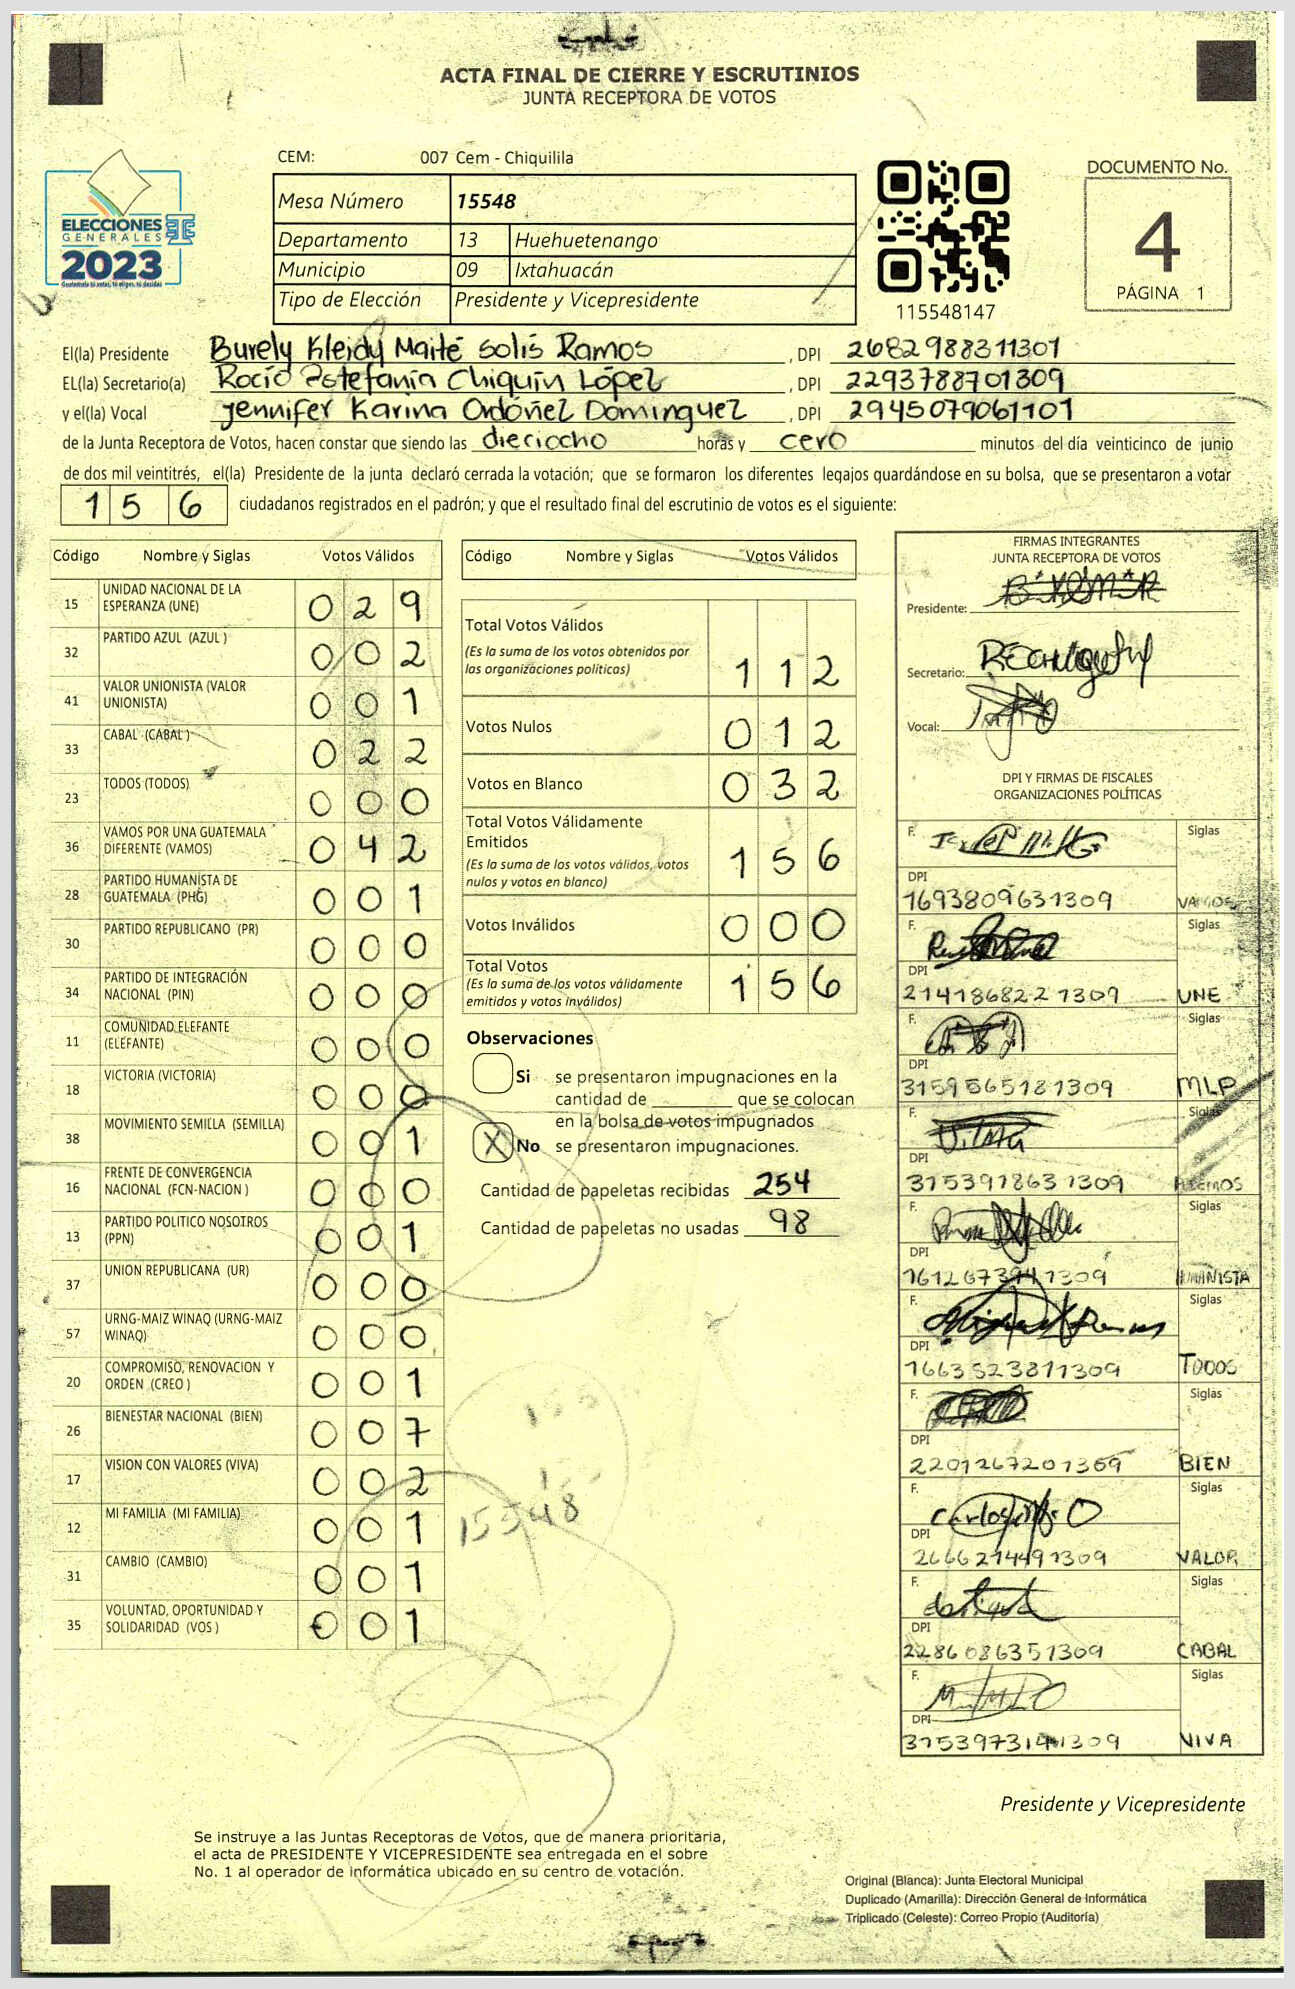 ACTA FINAL DE CIERRE Y ESCRUTINIOS
JUNTA RECEPTORA DE VOTOS
ELECCIONES
GENERALES
2023
CEM: 007 Cem - Chiquilila
Mesa Número 15548
Departamento 13 Huehuetenango
Municipio 09 Ixtahuacán
Tipo de Elección Presidente y Vicepresidente
115548147
DOCUMENTO No.
4
PÁGINA 1
El(la) Presidente Burely Kleidy Maité Solis Ramos , DPI 2682988311301
EL(la) Secretario(a) Rocío Estefanía Chiquín López , DPI 2293788701309
y el(la) Vocal Jennifer Karina Ordóñez Dominguez , DPI 2945079061101
de la Junta Receptora de Votos, hacen constar que siendo las dieciocho horas y cero minutos del día veinticinco de junio
de dos mil veintitrés, el(la) Presidente de la junta declaró cerrada la votación; que se formaron los diferentes legajos guardándose en su bolsa, que se presentaron a votar
156 ciudadanos registrados en el padrón; y que el resultado final del escrutinio de votos es el siguiente:
Código Nombre y Siglas Votos Válidos
15 UNIDAD NACIONAL DE LA ESPERANZA (UNE) 029
32 PARTIDO AZUL (AZUL ) 002
41 VALOR UNIONISTA (VALOR UNIONISTA) 001
33 CABAL (CABAL ) 022
23 TODOS (TODOS) 000
36 VAMOS POR UNA GUATEMALA DIFERENTE (VAMOS) 042
28 PARTIDO HUMANISTA DE GUATEMALA (PHG) 001
30 PARTIDO REPUBLICANO (PR) 000
34 PARTIDO DE INTEGRACIÓN NACIONAL (PIN) 000
11 COMUNIDAD ELEFANTE (ELEFANTE) 000
18 VICTORIA (VICTORIA) 000
38 MOVIMIENTO SEMILLA (SEMILLA) 001
16 FRENTE DE CONVERGENCIA NACIONAL (FCN-NACION ) 000
13 PARTIDO POLITICO NOSOTROS (PPN) 001
37 UNION REPUBLICANA (UR) 000
57 URNG-MAIZ WINAQ (URNG-MAIZ WINAQ) 000
20 COMPROMISO, RENOVACION Y ORDEN (CREO ) 001
26 BIENESTAR NACIONAL (BIEN) 007
17 VISION CON VALORES (VIVA) 002
12 MI FAMILIA (MI FAMILIA) 001
31 CAMBIO (CAMBIO) 001
35 VOLUNTAD, OPORTUNIDAD Y SOLIDARIDAD (VOS ) 001
Código Nombre y Siglas Votos Válidos
Total Votos Válidos
(Es la suma de los votos obtenidos por
las organizaciones políticas) 112
Votos Nulos 012
Votos en Blanco 032
Total Votos Válidamente
Emitidos
(Es la suma de los votos válidos, votos
nulos y votos en blanco) 156
Votos Inválidos 000
Total Votos
(Es la suma de los votos válidamente
emitidos y votos inválidos) 156
Observaciones
Si se presentaron impugnaciones en la
cantidad de ________ que se colocan
en la bolsa de votos impugnados
X No se presentaron impugnaciones.
Cantidad de papeletas recibidas 254
Cantidad de papeletas no usadas 98
15548
FIRMAS INTEGRANTES
JUNTA RECEPTORA DE VOTOS
Presidente:
Secretario:
Vocal:
DPI Y FIRMAS DE FISCALES
ORGANIZACIONES POLÍTICAS
F. Siglas
DPI
1693809631309 VAMOS
F. Siglas
DPI
2141868221309 UNE
F. Siglas
DPI
3159565181309 MLP
F. Siglas
DPI
3153918631309
F. Siglas
DPI
1612673941309 HUMANISTA
F. Siglas
DPI
1663523811309 TODOS
F. Siglas
DPI
2201267201309 BIEN
F. Siglas
DPI
2666214491309 VALOR
F. Siglas
DPI
2286086351309 CABAL
F. Siglas
DPI
3153973141309 VIVA
Presidente y Vicepresidente
Se instruye a las Juntas Receptoras de Votos, que de manera prioritaria,
el acta de PRESIDENTE Y VICEPRESIDENTE sea entregada en el sobre
No. 1 al operador de informática ubicado en su centro de votación.
Original (Blanca): Junta Electoral Municipal
Duplicado (Amarilla): Dirección General de Informática
Triplicado (Celeste): Correo Propio (Auditoría)